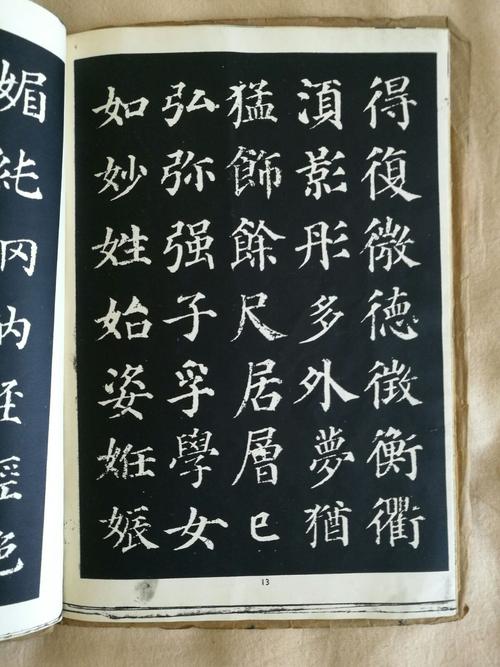 得復微德徵衡衢
湏影彤多外夢猶
猛飾餘尺居層巳
弘弥强子孚學女
如妙姓始姿姙娠
13
媚